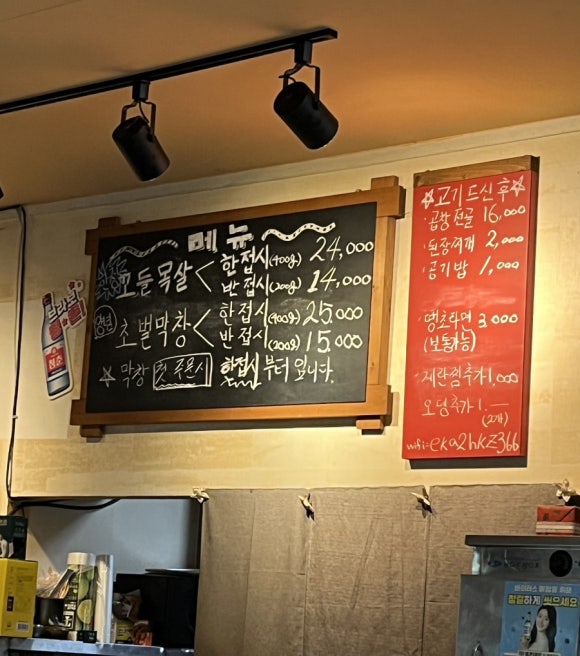 메뉴
모듬목살 < 한접시(400g) 24,000
반접시(200g) 14,000
초벌막창 < 한접시(400g) 25.000
반접시(200g) 15.000
☆ 막창 첫 주문시 한접시부터 입니다.
☆고기 드신 후☆
·곱창전골 16,000
·된장찌개 2,000
·공기밥 1,000
·땡초라면 3.000
(보통가능)
·계란찜추가 1,000
오뎅추가 1.—
(2개)
wifi=eka2hkz366
바이러스
청결하게 씻으세요